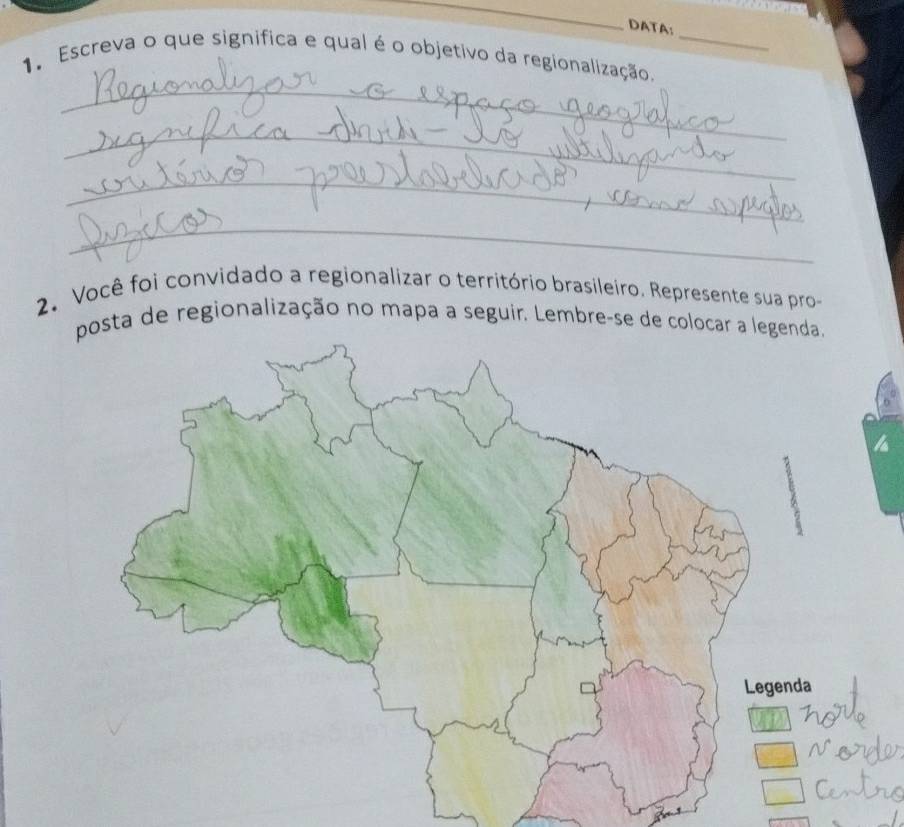 DATA:
1. Escreva o que significa e qual é o objetivo da regionalização.
Regionalizar o espaço geográfico
significa dividi-lo utilizando
critérios preestabelecidos, como aspectos
fizicos
2. Você foi convidado a regionalizar o território brasileiro. Represente sua pro-
posta de regionalização no mapa a seguir. Lembre-se de colocar a legenda.
Legenda
norte
Nordes
Centro